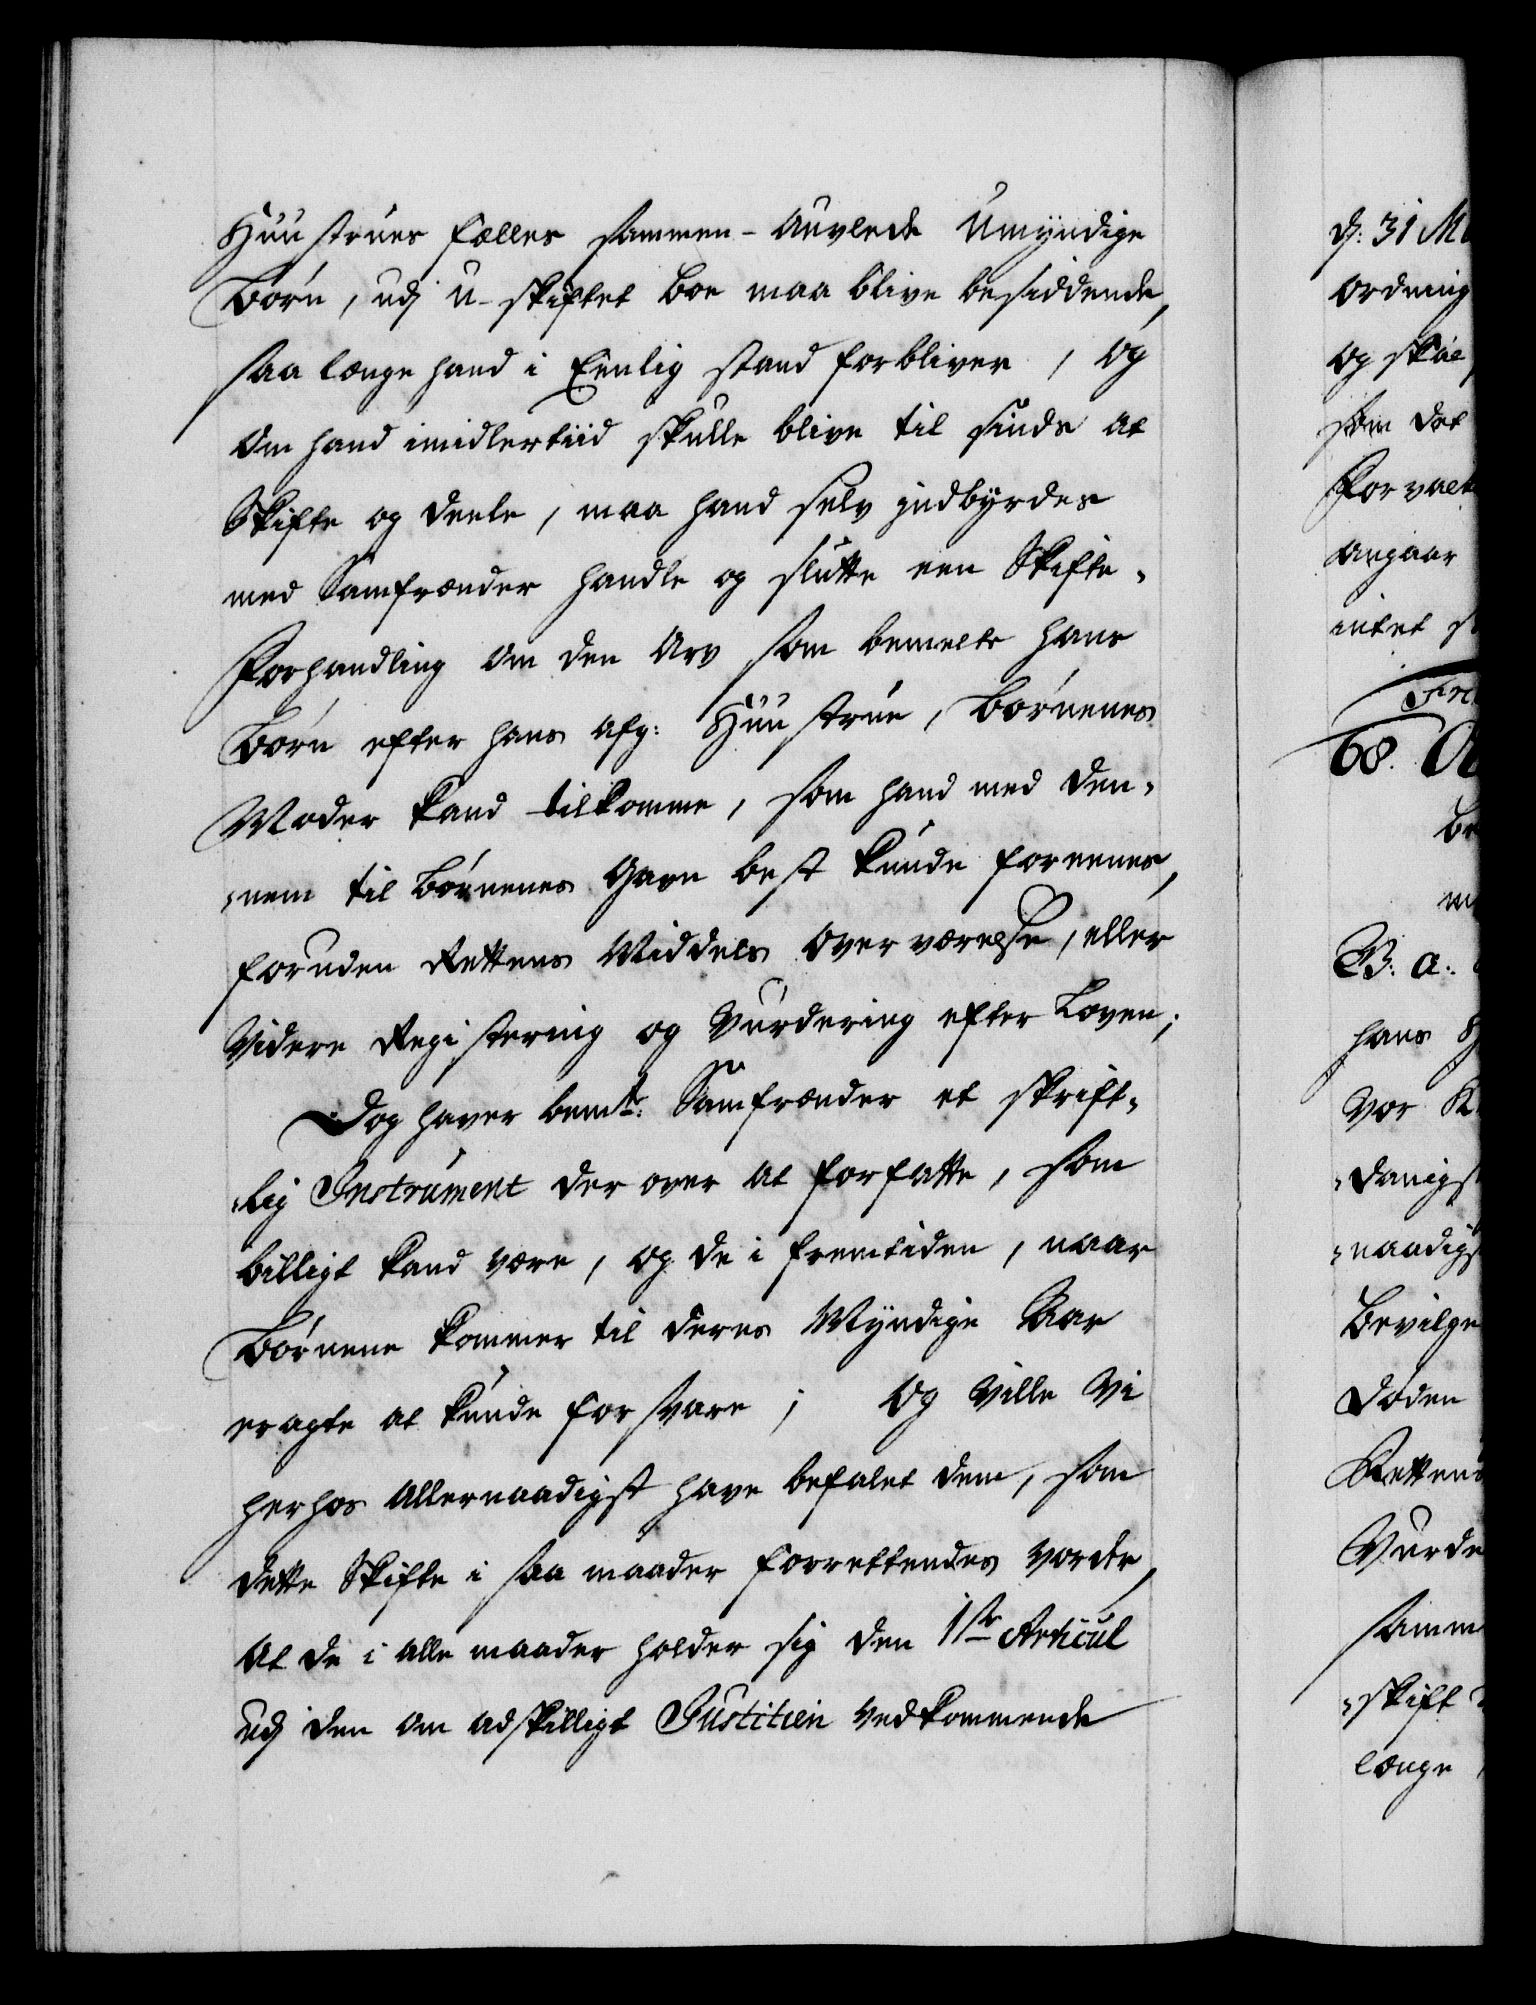 Huustrues fælles sammen-Auvlede Umyndige
Børn, udj u-skiftet Boe maa blive besiddende,
saa længe hand i Eenlig stand forbliver, og
om hand imidlertiid skulle blive til sinds at
Skifte og deele, maa hand selv indbyrdes
med Samfrænder handle og slutte een Skifte-
Forhandling om den Arv som bemelte hans
Børn efter hans afg: Huustrue, Børnenes
Moder kand tilkomme, som hand med den-
nem til Børnenes Gavn best kunde foreenes,
foruden Rettens Middels Overværelse, eller
Videre Registering og Vurdering efter Loven;
Dog haver bemte: Samfrænder et skrift-
lig Instrument der over at forfatte, som
billigt kand være, og de i fremtiden, naar
Børnene kommer til deres Myndige Aar
eragte at kunde forsvare; Og Ville Vi
herhos allernaadigst have befalet dem, som
dette Skifte i saa maader forrettendes vorder,
at de i alle maader holder sig den 1ste Articul
udj den om adskilligt Justitien vedkommende
d: 31 M
ordning
og skal
som det
Forvalt
angaar
intet
Fr
68.
B: a:
hans
Vor K
danigst
naadigst
Bevilge
Døden
Rettens
Vurde
samm
skift
længe